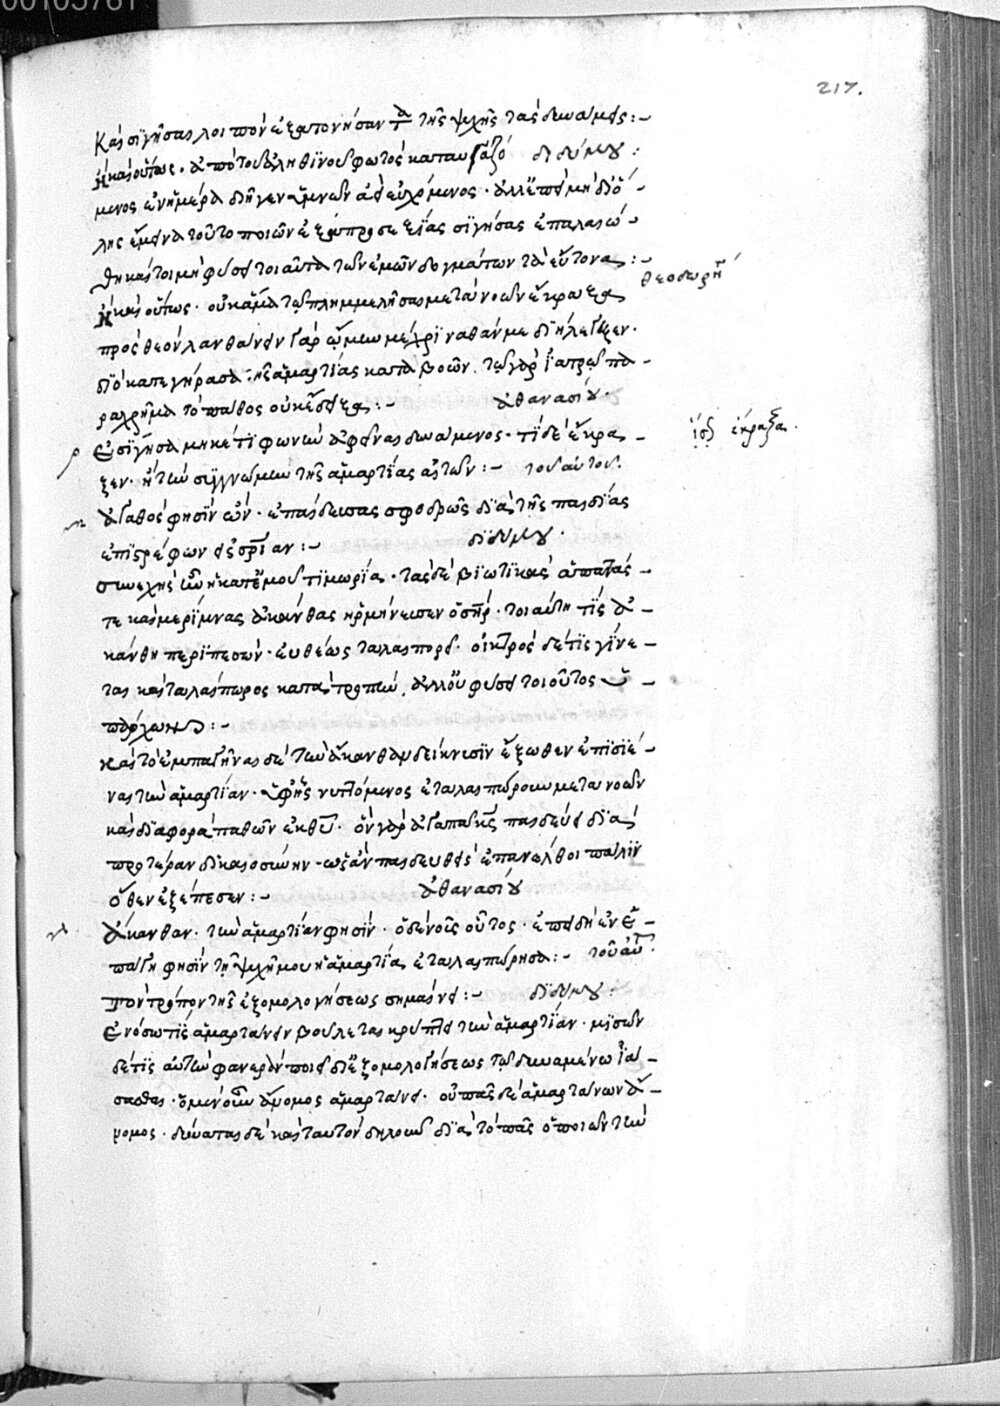 217.
Καὶ σιγῆσαι λοιπὸν ἐξατονήσαντα τῆς ψυχῆς τὰς δυνάμεις :~
Ἢ καὶ οὕτως. ἀπὸ τοῦ ἀληθινοῦ φωτὸς καταυγαζό διδύμου :
μενος ἐν ἡμέρᾳ διῆγεν ὑμνῶν ἀεὶ εὐχόμενος. ἀλλ' ἐπεὶ μὴ δι' ὅ –
λης ἔμεινα τοῦτο ποιῶν ἐξ ἀπροσεξίας σιγήσας ἐπαλαιώ –
θη καίτοι μὴ φύσει τοιαῦτα τῶν ἐμῶν δογμάτων τὰ εὔτονα :~
θεοδωρή
Ἢ καὶ οὕτως. οὐκ ἅμα τῷ πλημμελῆσαι μετανοῶν ἔκραξα
πρὸς θεόν λανθάνειν γὰρ ᾤμην μέχρι ναθάν με διήλεγξεν.
διὸ κατεγήρασα τῆς ἁμαρτίας καταβοῶν. τῷ γὰρ ἰατρῷ πα –
ραχρῆμα τὸ πάθος οὐκ ἔδειξα :~ ἀθανασίου.
Ἐσίγησα μηκέτι φωνὴν ἀφεῖναι δυνάμενος. τί δὲ ἔκρα –
ἰσ ἐκραξα.
ξεν. ἢ τὴν συγγνώμην τῆς ἁμαρτίας αἰτῶν :~ τοῦ αὐτοῦ.
Ἀγαθὸς φησὶν ὤν. ἐπαίδευσας σφοδρῶς διὰ τῆς παιδίας
ἐπιστρέφων εἰς σρίαν :~ διδύμου.
συνεχὴς οὖν ἡ κατ' ἐμοῦ τιμωρία. τὰς δὲ βιωτικὰς ἀπάτας –
τε καὶ μερίμνας ἀκάνθας ἡρμήνευσεν ὁ σηρ. τοιαύτῃ τίς ἀ –
κάνθῃ περιπεσὼν. εὐθέως ταλαιπορεῖ. οἰκτρὸς δέ τις γίνε –
ται καὶ ταλαίπωρος κατὰ τροπὴν. ἀλλ' οὐ φύσει τοιοῦτος ὑ –
πάρχων :~
Καὶ τὸ ἐμπαγῆναι δὲ τὴν ἄκανθαν δείκνυσιν ἔξωθεν ἐπισιέ –
ναι τὴν ἁμαρτίαν. ὑφ' ἧς νυττόμενος ἐταλαιπώρουν μετανοῶν
καὶ διαφορὰ παθῶν ἐκ θυ. ὃν γὰρ ἀγαπᾷ κς παιδεύει διὰ
προτέραν δικαιοσύνην. ὡς ἂν παιδευθεὶς ἐπανέλθοι πάλιν
ὅθεν ἐξέπεσεν :~ ἀθανασίου
Ἄκανθαν. τὴν ἁμαρτίαν φησίν. ὁ δὲ νοῦς οὗτος. ἐπειδὴ ἐνε –
πάγη φησὶν τῇ ψυχῇ μου ἡ ἁμαρτία ἐταλαιπώρησα :~ τοῦ αὐτ.
Τὸν τρόπον τῆς ἐξομολογήσεως σημαίνει :~ διδύμου.
Ἐν ὅσῳ τις ἁμαρτάνειν βούλεται κρύπτει τὴν ἁμαρτίαν. μισῶν
δέ τις αὐτὴν φανερὰν ποιεῖ δι' ἐξομολογήσεως τῷ δυναμένῳ ἰά –
σασθαι. ὁ μὲν οὖν ἄνομος ἁμαρτάνει. οὐ πᾶς δὲ ἁμαρτάνων ἄ –
νομος. δύναται δὲ καὶ ταυτὸν δηλοῦν διὰ τὸ πᾶς ὁ ποιῶν τὴν